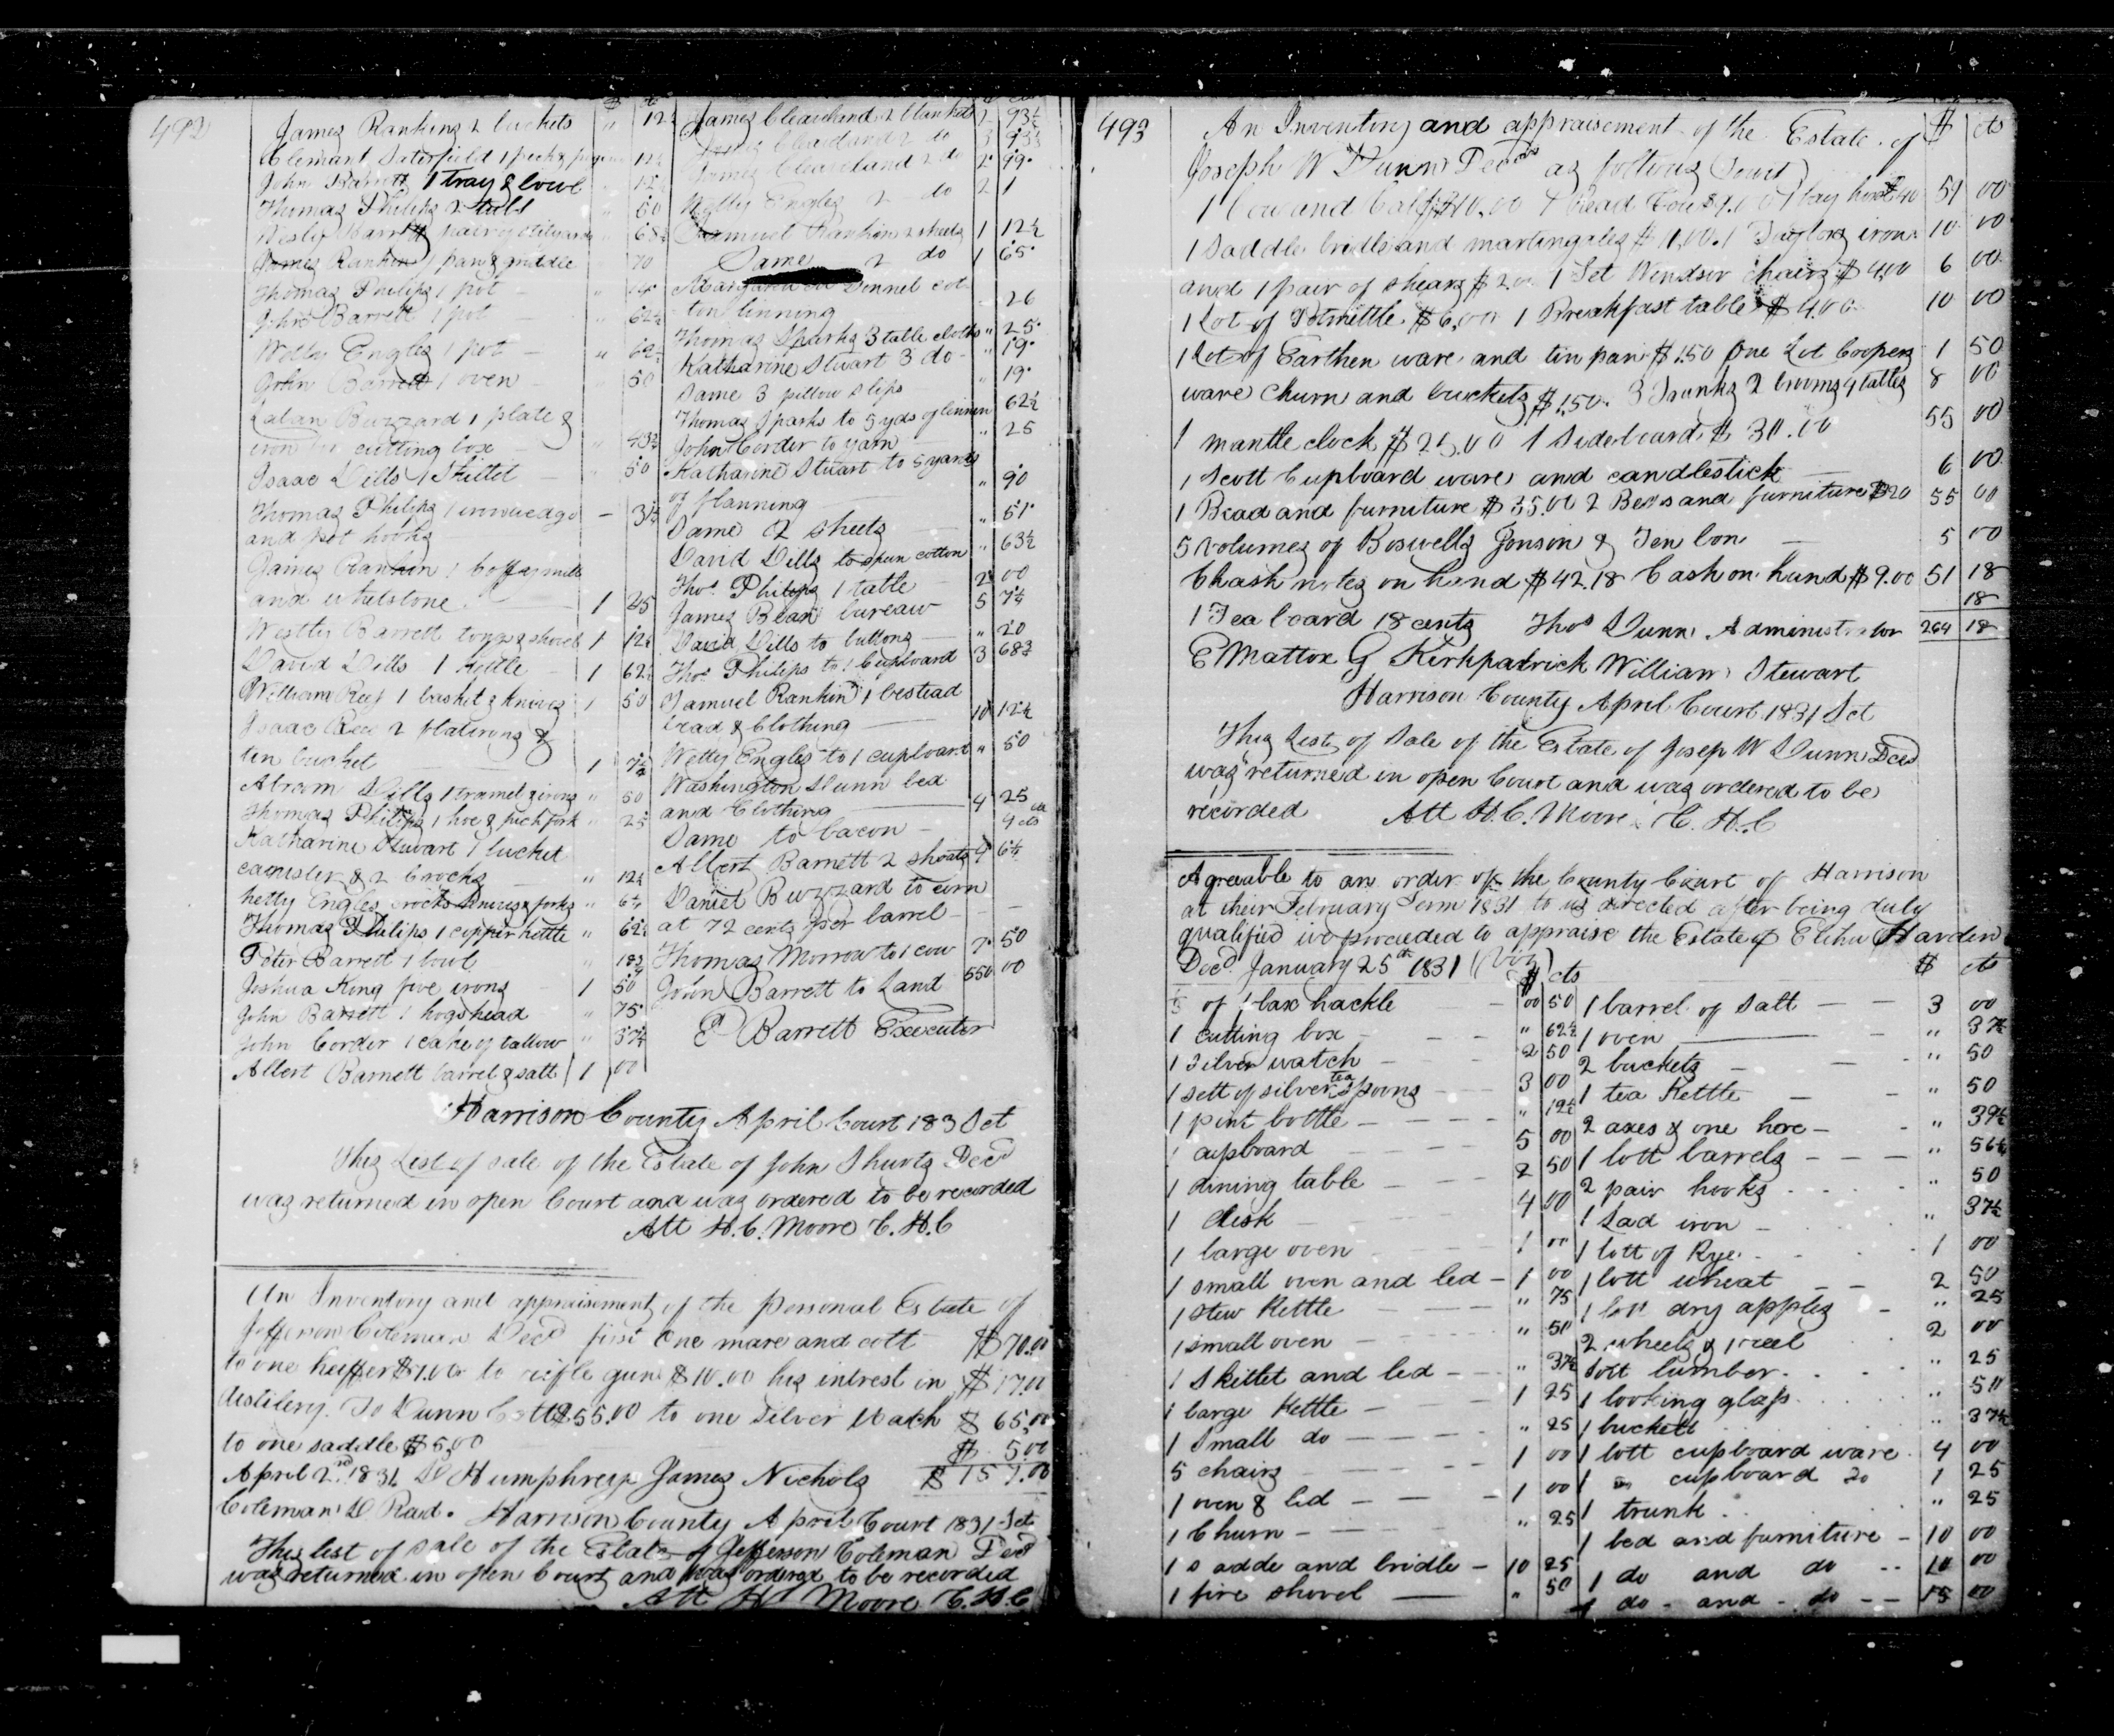 492
James Rankins 2 buckets " 12½
Clemant Saterfield 1 peck & 12½
John Barrett 1 tray & bowl 12½
Thomas Philips 2 tubs " 50
Wesly Barrett pair of stilyards " 68¾
James Rankin 1 pan & griddle 70
Thomas Philips 1 pot "
John Barrett 1 pot " 62½
Wetty Engles 1 pot " 62½
John Barrett 1 oven 50
Buzzard 1 plate &
iron for cutting box "
Isaac Dills 1 Skillet 50
Thomas Philips 1
and pot hooks
James Rankin 1 Coffey mill
and whetstone 1 25
Westly Barrett tongs & shovel 1 12½
David Dills 1 Kettle 1 62½
William Rees 1 basket & knives 1 50
Isaac Rees 2 flatirons &
tin bucket 1
Abram Dills 1 tramel & irons " 50
Thomas Philips 1 hoe & pichfork " 25
Katharine Stuart 1 bucket
canister & 2 crocks " 12½
hetty Engles crocks knives & forks " 6¼
Thomas Philips 1 copper kettle " 62½
Peter Barrett 1 bowl " 18¾
Joshua King five irons 1 50
John Barrett 1 hogshead " 75
John Corder 1 cake of tallow " 37½
Albert Barnett barrel & salt 1 00
James Cleaveland 2 blankets 2 93½
James Cleaveland 2 do 3 93¾
James Cleaveland 2 do 2 99
Wetty Engles 2 do 2 1
Samuel Rankin 2 sheets 1 12½
Same 2 do 1 65
Donnel cot
ton linning 26
Thomas Sparks 3 table cloths " 25
Katharine Stuart 3 do " 19
Same 3 pillow slips " 19
Thomas Sparks to 5 yds of linnen 62½
John Corder to yarn " 25
Katharine Stuart to 5 yards
of flanning " 90
Same 2 sheets " 51
David Dills to spun cotton " 63½
Thos Philips 1 table 2 00
James Bean bureaw 5 7½
David Dills to buttons " 20
Thos Philips to 1 Cupboard 3 68¾
Samuel Rankin 1 bestead
bead & Clothing 10 12½
Wetty Engles to 1 cupboard " 50
Washington Dunn bed
and Clothing 4 25
Same to bacon 4 cts
Albert Barnett 2 shoats 4 6¼
Daniel Buzzard to corn
at 72 cents per barrel
Thomas Morrow to 1 cow 7 50
John Barrett to Land 550 00
P Barrett Executor
Harrison County April Court 183 Sct
This List of sale of the Estate of John Shurts Decd
was returned in open Court and was ordered to be recorded
Att H. C. Moore C. H. C
An Inventory and appraisement of the personal Estate of
Jefferson Coleman Decd first One mare and colt $70.00
to one heiffer $7.00 to rifle gun $10.00 his intrest in $17.00
distilery To Dunn $55.00 to one Silver Watch $65.00
to one saddle $5.00 $5.00
April 2nd 1831 D Humphreys James Nichols $157.00
Coleman D Read. Harrison County April Court 1831 Sct
This list of sale of the Estate of Jefferson Coleman Decd
was returned in open Court and was ordered to be recorded
Att H C Moore C. H. C
493
An Inventory and appraisement of the Estate of $ cts
Joseph W Dunn Decd as follows (towit)
1 Cow and Calf $10,00 1 Bead Cow $9.00 1 bay horse 40 59 00
1 Saddle bridle and martingales $10,00. 1 Taylors iron 10 00
and 1 pair of shears $2.00 1 Set Windsor chairs $4,00 6 00
1 Lot of Potmettle $6,00 1 Breakfast table $4.00 10 00
1 Lot of Earthen ware and tin pan $1.50 One Lot Coopers 1 50
ware churn and buckets $1.50. 3 Trunks 2 brooms 4 tables 8 00
1 mantle clock $25.00 1 Sideboard $30.00 55 00
1 Scott Cupboard ware and candlestick 6 00
1 Bead and furniture $35,00 2 Beds and furniture $20 55 00
5 Volumes of Boswells Jonson & Ten 5 00
Chash notes on hand $42.18 Cash on hand $9.00 51 18
18
1 Tea board 18 cents Thos Dunn Administrator 264 18
E Mattox G Kirkpatrick William Stewart
Harrison County April Court 1831 Sct
This List of Sale of the Estate of Josep W Dunn Decd
was returned in open Court and was ordered to be
recorded Att H. C. Moore C. H. C
Agreeable to an order of the County Court of Harrison
at their February Term 1831 to us directed after being duly
qualified we proceeded to appraise the Estate of Elihu Harden
Decd January 25th 1831 (Viz)
$ cts
of flax hackle 00 50
1 cutting box " 62½
1 Silver watch 2 50
1 sett of silver tea spoons 3 00
1 pint bottle " 12½
1 cupboard 5 00
1 dining table 2 50
1 desk 4 00
1 large oven 1 00
1 small oven and led 1 00
1 stew Kettle " 75
1 small oven " 50
1 Skillet and led " 37½
1 large Kettle 1 25
1 Small do " 25
5 chairs 1 00
1 oven & led 1 00
1 Churn " 25
1 sadde and bridle 10 25
1 fire shovel " 50
$ cts
1 barrel of Salt 3 00
1 oven " 37½
2 buckets " 50
1 tea Kettle " 50
2 axes & one hoe " 37½
1 lott barrels " 56¼
2 pair hooks " 50
1 Sad iron " 37½
1 lott of Rye 1 00
1 lott wheat 2 50
1 lott dry apples " 25
2 wheels & 1 reel 2 00
Lott lumber " 25
1 looking glass " 50
1 buckett " 37½
1 lott cupboard ware 4 00
1 cupboard do 1 25
1 trunk " 25
1 bed and furniture 10 00
1 do and do 10 00
1 do and do 15 00